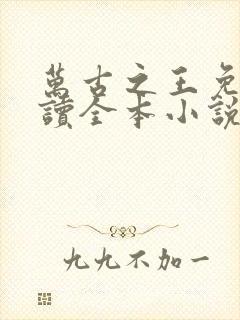 萬古之王免
讀全本小說
九九不加一